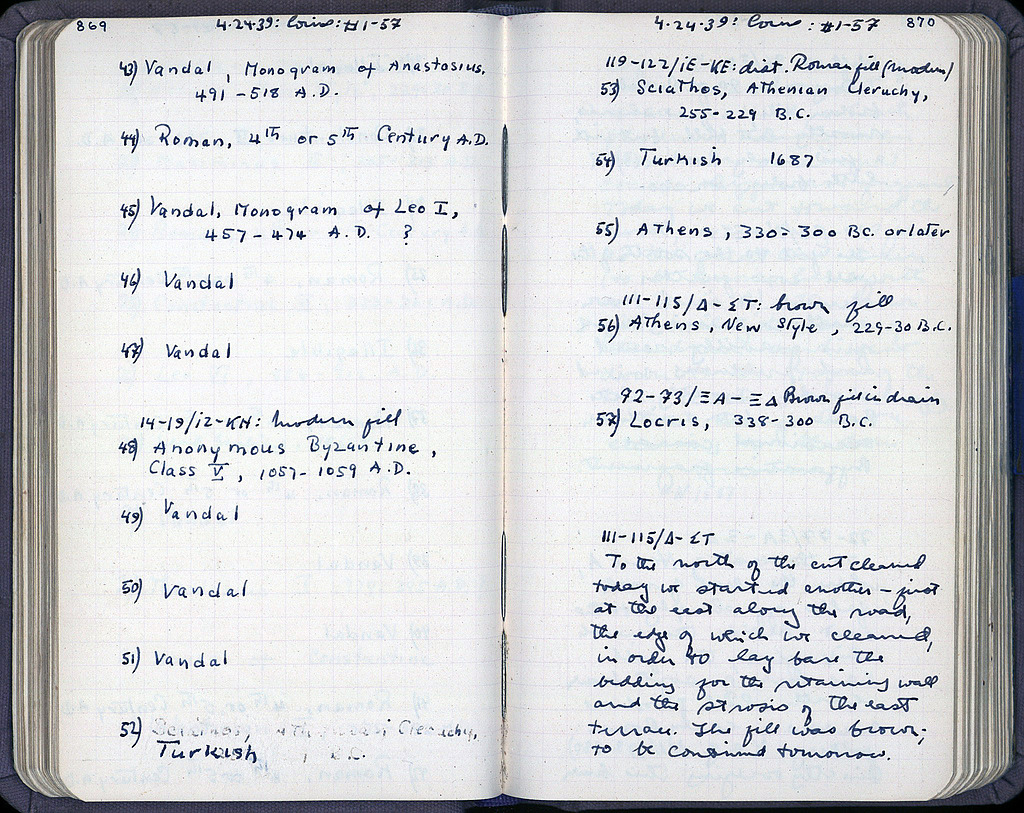 869
4·24·39: Coins: #1-57
43) Vandal, Monogram of Anastasius,
491-518 A.D.
44) Roman, 4TH or 5TH Century A.D.
45) Vandal, Monogram of Leo I,
457-474 A.D. ?
46) Vandal
47) Vandal
14-19/ΙΖ-ΚΗ: modern fill
48) Anonymous Byzantine,
Class V, 1057-1059 A.D.
49) Vandal
50) Vandal
51) Vandal
52) Sciathos, Athenian Cleruchy,
Turkish B.C.
4·24·39: Coins: #1-57
870
119-122/ΙΕ-ΚΕ: dist. Roman fill (modern)
53) Sciathos, Athenian Cleruchy,
255-229 B.C.
54) Turkish 1687
55) Athens, 330-300 B.C. or later
111-115/Δ-ΣΤ: brown fill
56) Athens, New Style, 229-30 B.C.
92-93/ΞΑ-ΞΔ Brown fill in drain
57) Locris, 338-300 B.C.
111-115/Δ-ΣΤ
To the north of the cut cleaned
today we started another - just
at the east along the road,
the edge of which we cleaned,
in order to lay bare the
bedding for the retaining wall
and the strosis of the east
terrace. The fill was brown;
to be continued tomorrow.